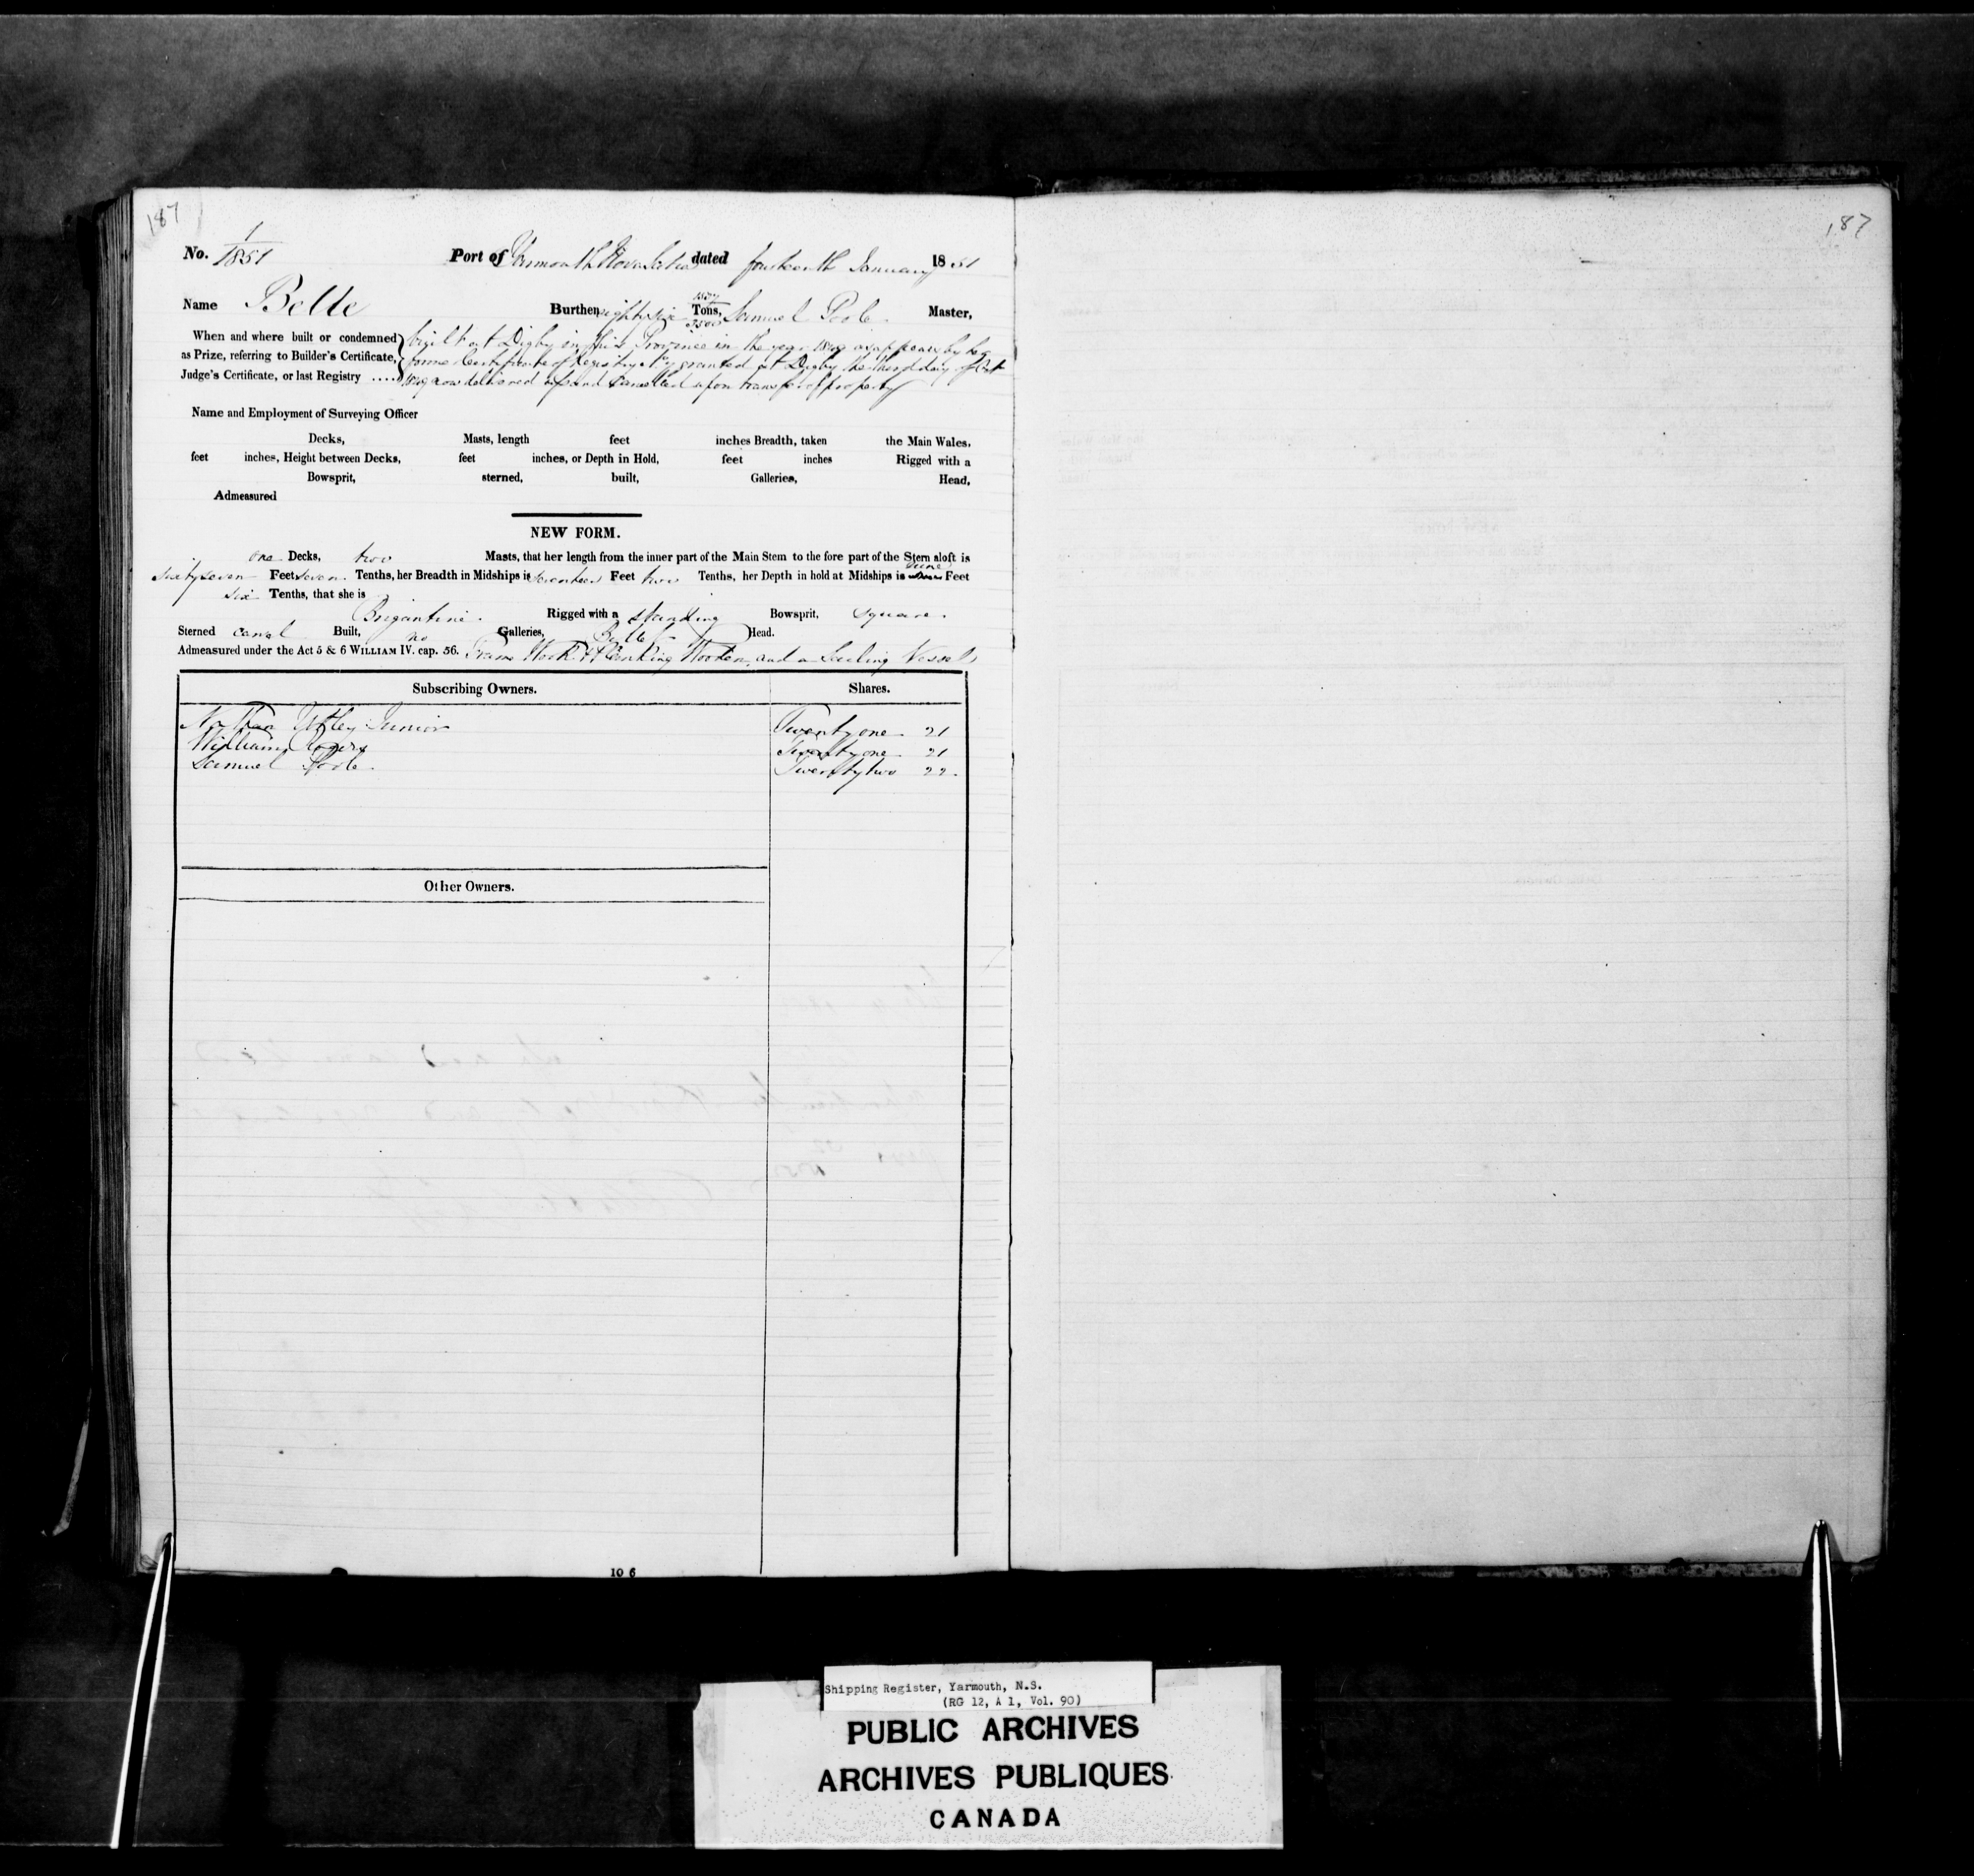 187
187
No. 1/1851 Port of Yarmouth Nova Scotia dated fourteenth January 1851
Name Belle Burthen eighty six Tons, 3500 Samuel Poole Master,
When and where built or condemned built at Digby in this Province in the year 1849 as appears by her
as Prize, referring to Builder's Certificate, former Certificate of Registry granted at Digby the third day of Oct
Judge's Certificate, or last Registry ..... now delivered up and Cancelled upon transfer of property
Name and Employment of Surveying Officer
Decks, Masts, length feet inches Breadth, taken the Main Wales.
feet inches, Height between Decks, feet inches, or Depth in Hold, feet inches Rigged with a
Bowsprit, sterned, built, Galleries, Head,
Admeasured
NEW FORM.
one Decks, two Masts, that her length from the inner part of the Main Stem to the fore part of the Stern aloft is
sixty seven Feet seven Tenths, her Breadth in Midships is seventeen Feet two Tenths, her Depth in hold at Midships is Feet
six Tenths, that she is
Brigantine. Rigged with a standing Bowsprit, square.
Sterned carvel Built, no Galleries, Head.
Admeasured under the Act 5 & 6 WILLIAM IV. cap. 56. Frame Work & Planking Wooden, and a Sailing Vessel
Subscribing Owners. Shares.
Nathan Utley Junior Twenty one 21
William Rogers Twenty one 21
Samuel Poole. Twenty two 22.
Other Owners.
10 6
Shipping Register, Yarmouth, N.S.
(RG 12, A 1, Vol. 90)
PUBLIC ARCHIVES
ARCHIVES PUBLIQUES
CANADA